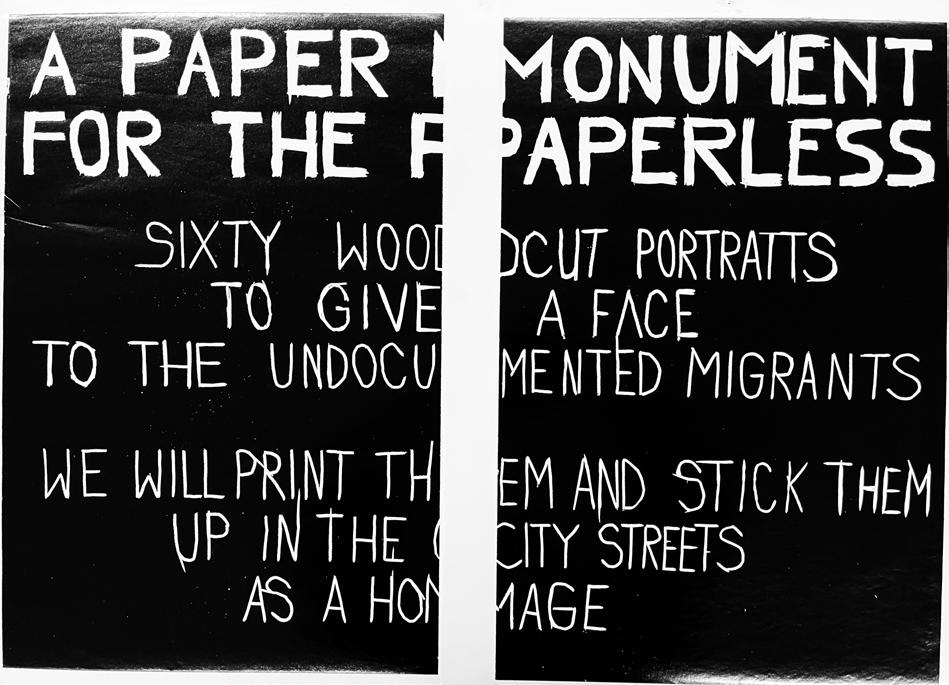 A PAPER MONUMENT
FOR THE PAPERLESS
SIXTY WOODCUT PORTRATTS
TO GIVE A FACE
TO THE UNDOCUMENTED MIGRANTS
WE WILL PRINT THEM AND STICK THEM
UP IN THE CITY STREETS
AS A HOMMAGE